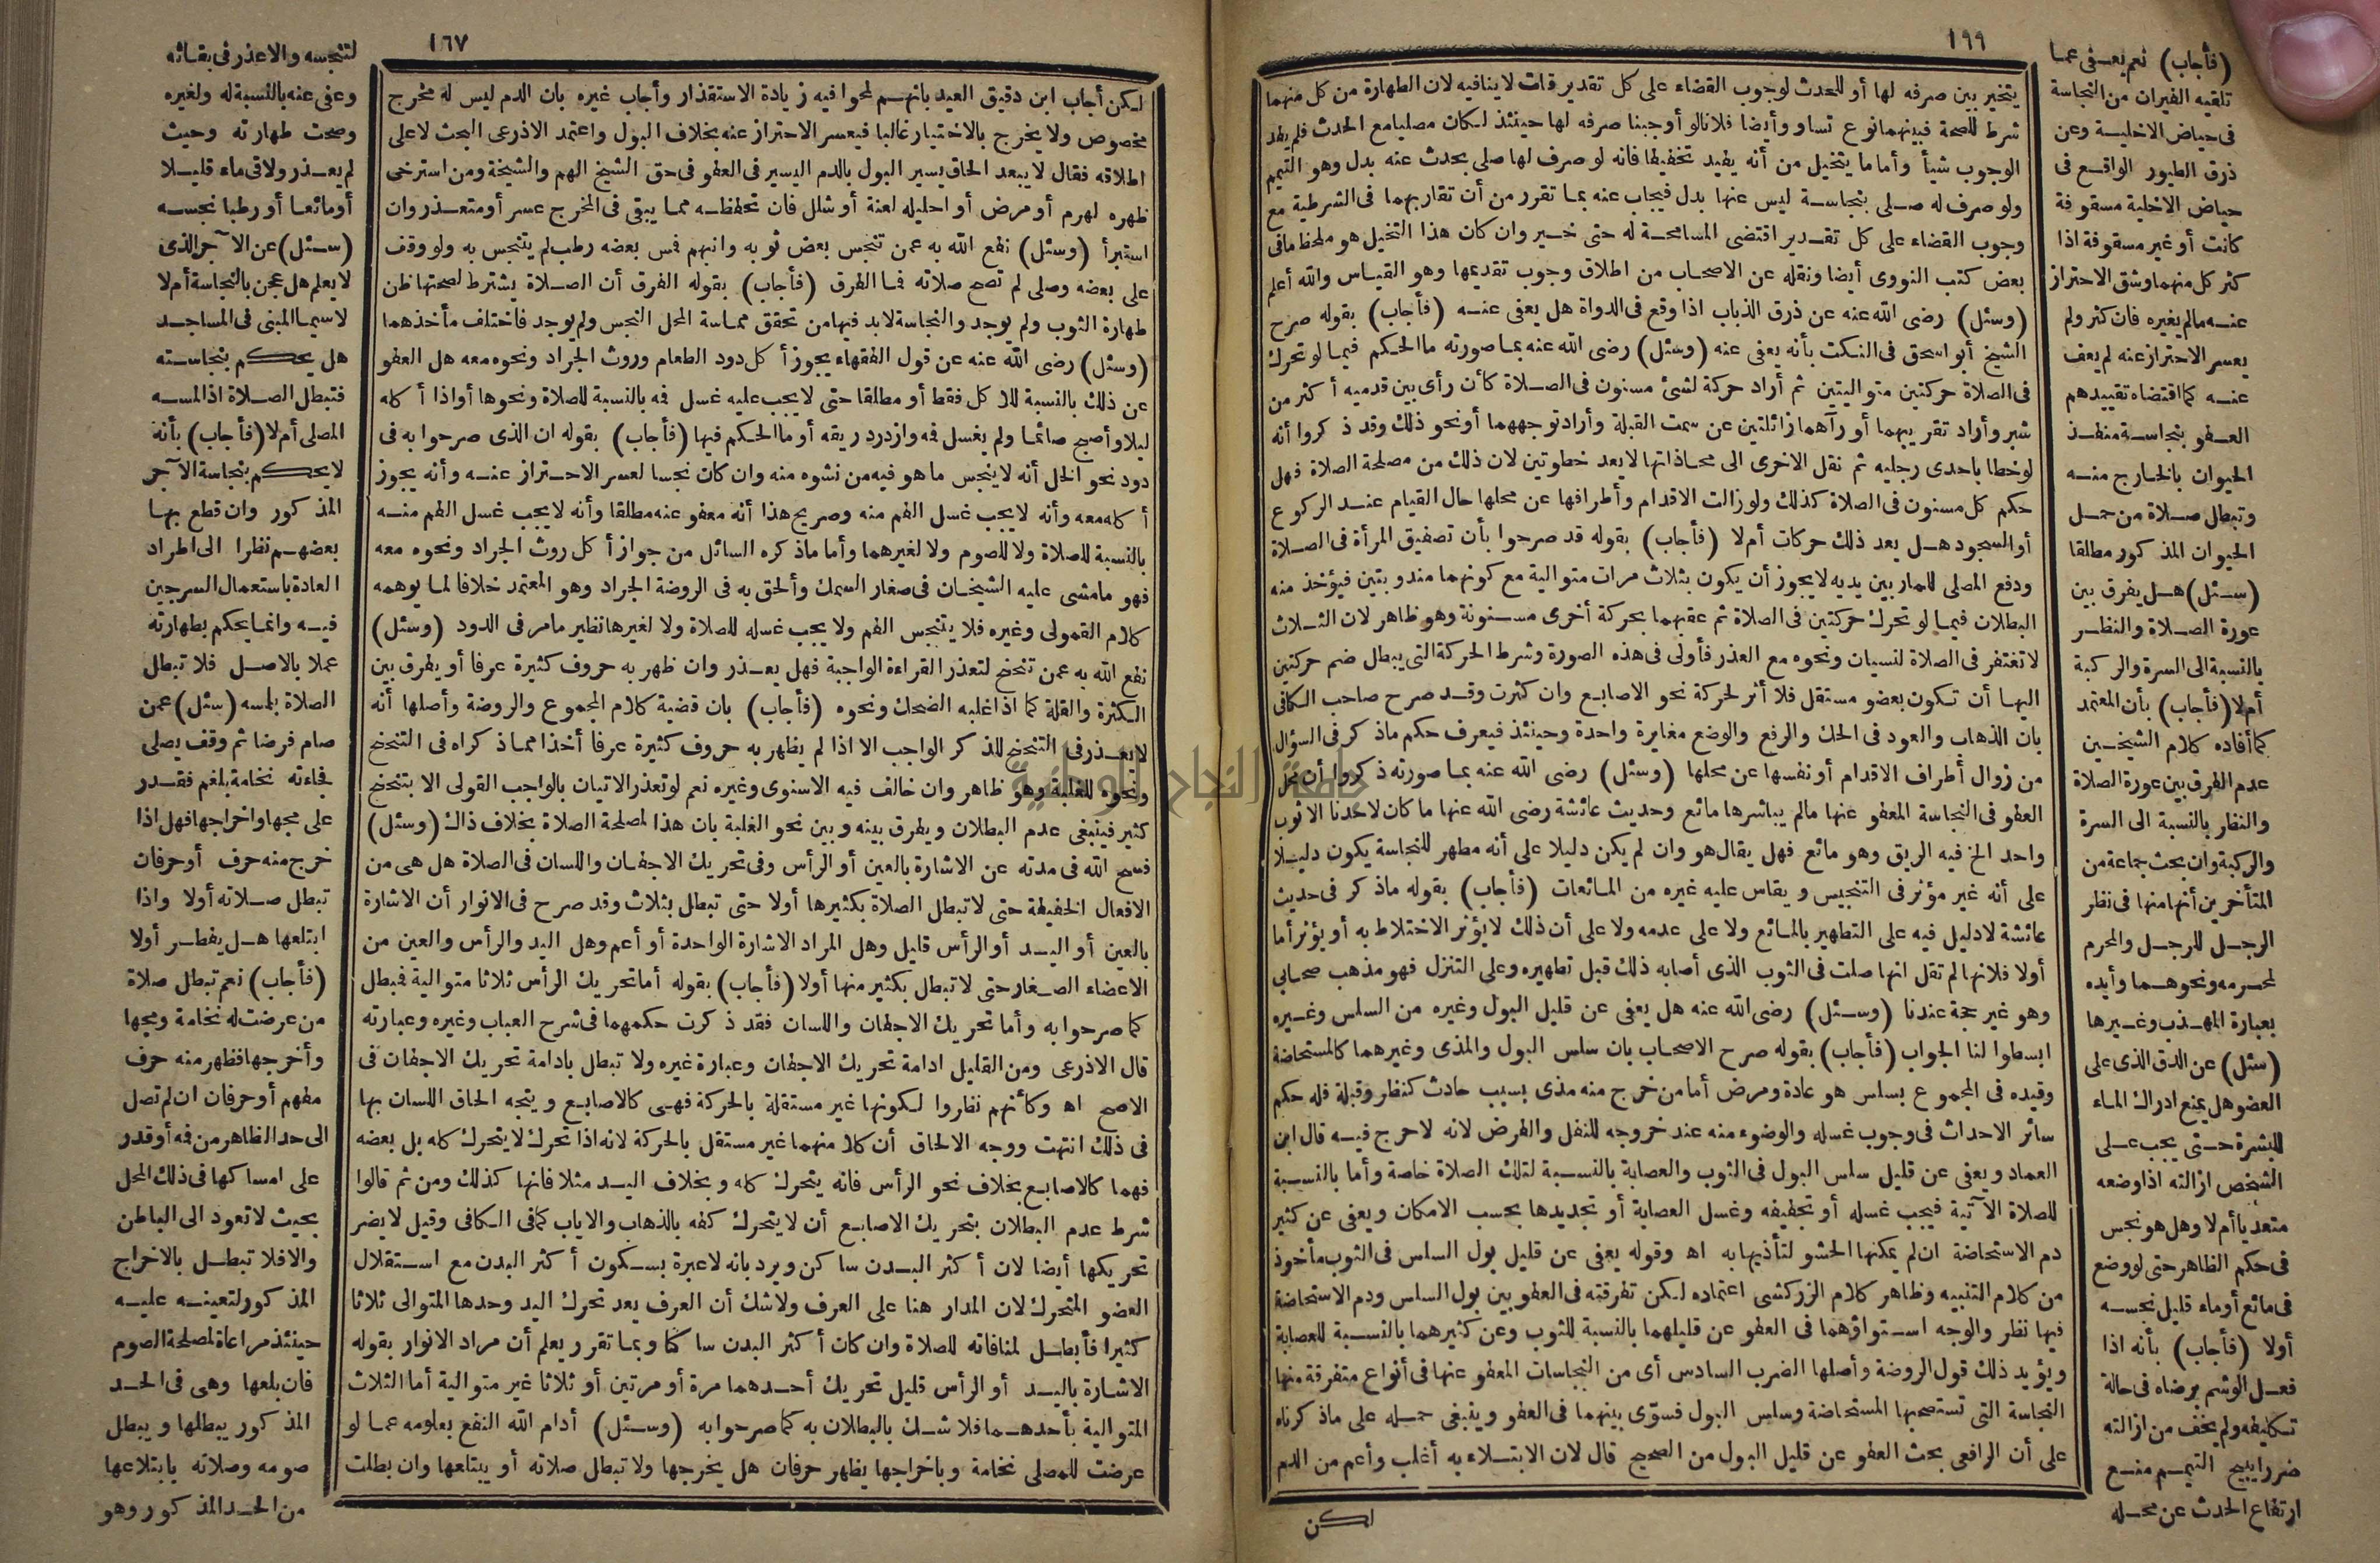 ١٦٦
يتخير بين صرفه لها أو للحدث لوجوب القضاء على كل تقدير قات لا ينافيه لان الطهارة من كل منهما
شرط للصحة فبينهما نوع تساو وأيضا فلا نالو أوجبنا صرفه لها حينئذ لكان مصليا مع الحدث فلم يفد
الوجوب شيأ وأما ما يتخيل من أنه يفيد تخفيفا فانه لو صرف لها صلى بحدث عنه بدل وهو التيمم
ولو صرف له صلى بنجاسة ليس عنها بدل فيجاب عنه بما تقرر من أن تقاربهما فى الشرطية مع
وجوب القضاء على كل تقدير اقتضى المسامحة له حتى خير وان كان هذا التخيل هو ملحظ ما فى
بعض كتب النووى أيضا ونقله عن الاصحاب من اطلاق وجوب تقديمها وهو القياس والله أعلم
(وسئل) رضى الله عنه عن ذرق الذباب اذا وقع فى الدواة هل يعفى عنه (فأجاب) بقوله صرح
الشيخ أبو اسحق فى النكت بأنه يعفى عنه (وسئل) رضى الله عنه بما صورته ما الحكم فيما لو تحرك
فى الصلاة حركتين متواليتين ثم أراد حركة لشئ مسنون فى الصلاة كأن رأى بين قدميه أكثر من
شبر وأراد تقريبهما أو رآهما زائلتين عن سمت القبلة وأراد توجههما أو نحو ذلك وقد ذكروا أنه
لو خطا باحدى رجليه ثم نقل الاخرى الى محاذاتها لا يعد خطوتين لان ذلك من مصلحة الصلاة فهل
حكم كل مسنون فى الصلاة كذلك ولو زالت الاقدام وأطرافها عن محلها حال القيام عند الركوع
أو السجود هل يعد ذلك حركات أم لا (فأجاب) بقوله قد صرحوا بأن تصفيق المرأة فى الصلاة
ودفع المصلى للمار بين يديه لا يجوز أن يكون بثلاث مرات متوالية مع كونهما مندوبتين فيؤخذ منه
البطلان فيما لو تحرك حركتين فى الصلاة ثم عقبهما بحركة أخرى مسنونة وهو ظاهر لان الثلاث
لا تغتفر فى الصلاة لنسيان ونحوه مع العذر فأولى فى هذه الصورة وشرط الحركة التى يبطل ضم حركتين
اليها أن تكون بعضو مستقل فلا أثر لحركة نحو الاصابع وان كثرت وقد صرح صاحب الكافى
بان الذهاب والعود فى الحك والرفع والوضع مغايرة واحدة وحينئذ فيعرف حكم ماذكر فى السؤال
من زوال أطراف الاقدام أو نفسها عن محلها (وسئل) رضى الله عنه بما صورته ذكروا أن محل
العفو فى النجاسة المعفو عنها مالم يباشرها مائع وحديث عائشة رضى الله عنها ما كان لاحدنا الا ثوب
واحد الخ فيه الريق وهو مائع فهل يقال هو وان لم يكن دليلا على أنه مطهر للنجاسة يكون دليلا
على أنه غير مؤثر فى التنجيس ويقاس عليه غيره من المائعات (فأجاب) بقوله ماذكر فى حديث
عائشة لا دليل فيه على التطهير بالمائع ولا على عدمه ولا على أن ذلك لا يؤثر الاختلاط به أو يؤثر أما
أولا فلانها لم تقل انها صلت فى الثوب الذى أصابه ذلك قبل تطهيره وعلى التنزل فهو مذهب صحابى
وهو غير حجة عندنا (وسئل) رضى الله عنه هل يعفى عن قليل البول وغيره من السلس وغيره
ابسطوا لنا الجواب (فأجاب) بقوله صرح الاصحاب بان سلس البول والمذى وغيرهما كالمستحاضة
وقيده فى المجموع بسلس هو عادة ومرض أما من خرج منه مذى بسبب حادث كنظر وقبلة فله حكم
سائر الاحداث فى وجوب غسله والوضوء منه عند خروجه للنفل والفرض لانه لا حرج فيه قال ابن
العماد ويعفى عن قليل سلس البول فى الثوب والعصابة بالنسبة لتلك الصلاة خاصة وأما بالنسبة
للصلاة الآتية فيجب غسله أو تخفيفه وغسل العصابة أو تجديدها بحسب الامكان ويعفى عن كثير
دم الاستحاضة ان لم يمكنها الحشو لتأذيها به اه وقوله يعفى عن قليل بول السلس فى الثوب مأخوذ
من كلام التنبيه وظاهر كلام الزركشى اعتماده لكن تفرقته فى العفو بين بول السلس ودم الاستحاضة
فيها نظر والوجه استواؤهما فى العفو عن قليلهما بالنسبة للثوب وعن كثيرهما بالنسبة للعصابة
ويؤيد ذلك قول الروضة وأصلها الضرب السادس أى من النجاسات المعفو عنها فى أنواع متفرقة منها
النجاسة التى تستصحبها المستحاضة وسلس البول فسوّى بينهما فى العفو وينبغى حمله على ماذكرناه
على أن الرافعى بحث العفو عن قليل البول من الصحيح قال لان الابتلاء به أغلب وأعم من الدم
لكن
(فأجاب) نعم يعفى عما
تلقيه الفيران من النجاسة
فى حياض الاخلية وعن
ذرق الطيور الواقع فى
حياض الاخلية مسقوفة
كانت أو غير مسقوفة اذا
كثر كل منهما وشق الاحتراز
عنه مالم يغيره فان كثر ولم
يعسر الاحتراز عنه لم يعف
عنه كما اقتضاه تقييدهم
العفو بنجاسة منفذ
الحيوان بالخارج منه
وتبطل صلاة من حمل
الحيوان المذكور مطلقا
(سئل) هل يفرق بين
عورة الصلاة والنظر
بالنسبة الى السرة والركبة
أم لا (فأجاب) بأن المعتمد
كما أفاده كلام الشيخين
عدم الفرق بين عورة الصلاة
والنظر بالنسبة الى السرة
والركبة وان بحث جماعة من
المتأخرين أنها منها فى نظر
الرجل للرجل والمحرم
لمحرمه ونحوهما وأيده
بعبارة المهذب وغيرها
(سئل) عن الدق الذى على
العضو هل يمنع ادراك الماء
للبشرة حتى يجب على
الشخص ازالته اذا وضعه
متعديا أم لا وهل هو نجس
فى حكم الظاهر حتى لو وضع
فى مائع أو ماء قليل نجسه
أولا (فأجاب) بأنه اذا
فعل الوشم برضاه فى حالة
تكليفه ولم يخف من ازالته
ضررا يبيح التيمم منع
ارتفاع الحدث عن محله
١٦٧
لكن أجاب ابن دقيق العيد بانهم لمحوا فيه زيادة الاستقذار وأجاب غيره بان الدم ليس له مخرج
مخصوص ولا يخرج بالاختيار غالبا فيعسر الاحتراز عنه بخلاف البول واعتمد الاذرعى البحث لا على
اطلاقه فقال لا يبعد الحاق يسير البول بالدم اليسير فى العفو فى حق الشيخ الهم والشيخة ومن استرخى
ظهره لهرم أو مرض أو احليله لعنة أو شلل فان تحفظه مما يبقى فى المخرج عسر أو متعذر وان
استبرأ (وسئل) نفع الله به عمن تنجس بعض ثوبه وانبهم فمس بعضه رطب لم يتنجس به ولو وقف
على بعضه وصلى لم تصح صلاته فما الفرق (فأجاب) بقوله الفرق أن الصلاة يشترط لصحتها ظن
طهارة الثوب ولم يوجد والنجاسة لابد فيها من تحقق مماسة المحل النجس ولم يوجد فاختلف مأخذهما
(وسئل) رضى الله عنه عن قول الفقهاء يجوز أكل دود الطعام وروث الجراد ونحوه معه هل العفو
عن ذلك بالنسبة للاكل فقط أو مطلقا حتى لا يجب عليه غسل فمه بالنسبة للصلاة ونحوها أو اذا أكله
ليلا وأصبح صائما ولم يغسل فمه وازدرد ريقه أو ما الحكم فيها (فأجاب) بقوله ان الذى صرحوا به فى
دود نحو الخل أنه لا ينجس ما هو فيه من نشوه منه وان كان نجسا لعسر الاحتراز عنه وأنه يجوز
أكله معه وأنه لا يجب غسل الفم منه وصريح هذا أنه معفو عنه مطلقا وأنه لا يجب غسل الفم منه
بالنسبة للصلاة ولا للصوم ولا لغيرهما وأما ماذكره السائل من جواز أكل روث الجراد ونحوه معه
فهو ما مشى عليه الشيخان فى صغار السمك وألحق به فى الروضة الجراد وهو المعتمد خلافا لما يوهمه
كلام القمولى وغيره فلا يتنجس الفم ولا يجب غسله للصلاة ولا لغيرها نظير ما مر فى الدود (وسئل)
نفع الله به عمن تنحنح لتعذر القراءة الواجبة فهل يعذر وان ظهر به حروف كثيرة عرفا أو يفرق بين
الكثرة والقلة كما اذا غلبه الضحك ونحوه (فأجاب) بان قضية كلام المجموع والروضة وأصلها أنه
لا يعذر فى التنحنح للذكر الواجب الا اذا لم يظهر به حروف كثيرة عرفا أخذا مما ذكراه فى التنحنح
ونحوه للغلبة وهو ظاهر وان خالف فيه الاسنوى وغيره نعم لو تعذر الاتيان بالواجب القولى الا بتنحنح
كثير فينبغى عدم البطلان ويفرق بينه وبين نحو الغلبة بان هذا لمصلحة الصلاة بخلاف ذاك (وسئل)
فسح الله فى مدته عن الاشارة بالعين أو الرأس وفى تحريك الاجفان واللسان فى الصلاة هل هى من
الافعال الخفيفة حتى لا تبطل الصلاة بكثيرها أولا حتى تبطل بثلاث وقد صرح فى الانوار أن الاشارة
بالعين أو اليد أو الرأس قليل وهل المراد الاشارة الواحدة أو أعم وهل اليد والرأس والعين من
الاعضاء الصغار حتى لا تبطل بكثير منها أولا (فأجاب) بقوله أما تحريك الرأس ثلاثا متوالية فمبطل
كما صرحوا به وأما تحريك الاجفان واللسان فقد ذكرت حكمهما فى شرح العباب وغيره وعبارته
قال الاذرعى ومن القليل ادامة تحريك الاجفان وعبارة غيره ولا تبطل بادامة تحريك الاجفان فى
الاصح اه وكأنهم نظروا لكونها غير مستقلة بالحركة فهى كالاصابع ويتجه الحاق اللسان بها
فى ذلك انتهت ووجه الالحاق أن كلا منهما غير مستقل بالحركة لانه اذا تحرك لا يتحرك كله بل بعضه
فهما كالاصابع بخلاف نحو الرأس فانه يتحرك كله وبخلاف اليد مثلا فانها كذلك ومن ثم قالوا
شرط عدم البطلان بتحريك الاصابع أن لا يتحرك كفه بالذهاب والاياب كما فى الكافى وقيل لا يضر
تحريكها أيضا لان أكثر البدن ساكن ويرد بانه لا عبرة بسكون أكثر البدن مع استقلال
العضو المتحرك لان المدار هنا على العرف ولا شك أن العرف يعد تحرك اليد وحدها المتوالى ثلاثا
كثيرا فأبطل لمنافاته للصلاة وان كان أكثر البدن ساكنا وبما تقرر يعلم أن مراد الانوار بقوله
الاشارة باليد أو الرأس قليل تحريك أحدهما مرة أو مرتين أو ثلاثا غير متوالية أما الثلاث
المتوالية بأحدهما فلا شك بالبطلان به كما صرحوا به (وسئل) أدام الله النفع بعلومه عما لو
عرضت للمصلى نخامة وباخراجها يظهر حرفان هل يخرجها ولا تبطل صلاته أو يبتلعها وان بطلت
لتنجسه والاعذر فى بقائه
وعفى عنه بالنسبة له ولغيره
وصحت طهارته وحيث
لم يعذر ولاقى ماء قليلا
أو مائعا أو رطبا نجسه
(سئل) عن الآجر الذى
لا يعلم هل عجن بالنجاسة أم لا
لا سيما المبنى فى المساجد
هل يحكم بنجاسته
فتبطل الصلاة اذا لمسه
المصلى أم لا (فأجاب) بأنه
لا يحكم بنجاسة الآجر
المذكور وان قطع بها
بعضهم نظرا الى اطراد
العادة باستعمال السرجين
فيه وانما يحكم بطهارته
عملا بالاصل فلا تبطل
الصلاة بلمسه (سئل) عمن
صام فرضا ثم وقف يصلى
فجاءته نخامة بلغم فقدر
على مجها واخراجها فهل اذا
خرج منه حرف أو حرفان
تبطل صلاته أولا واذا
ابتلعها هل يفطر أولا
(فأجاب) نعم تبطل صلاة
من عرضت له نخامة ومجها
وأخرجها فظهر منه حرف
مفهم أو حرفان ان لم تصل
الى حد الظاهر من فمه أو قدر
على امساكها فى ذلك المحل
بحيث لا تعود الى الباطن
والا فلا تبطل بالاخراج
المذكور لتعينه عليه
حينئذ مراعاة لمصلحة الصوم
فان بلعها وهى فى الحد
المذكور يبطلها ويبطل
صومه وصلاته بابتلاعها
من الحد المذكور وهو
جامعة النجاح الوطنية